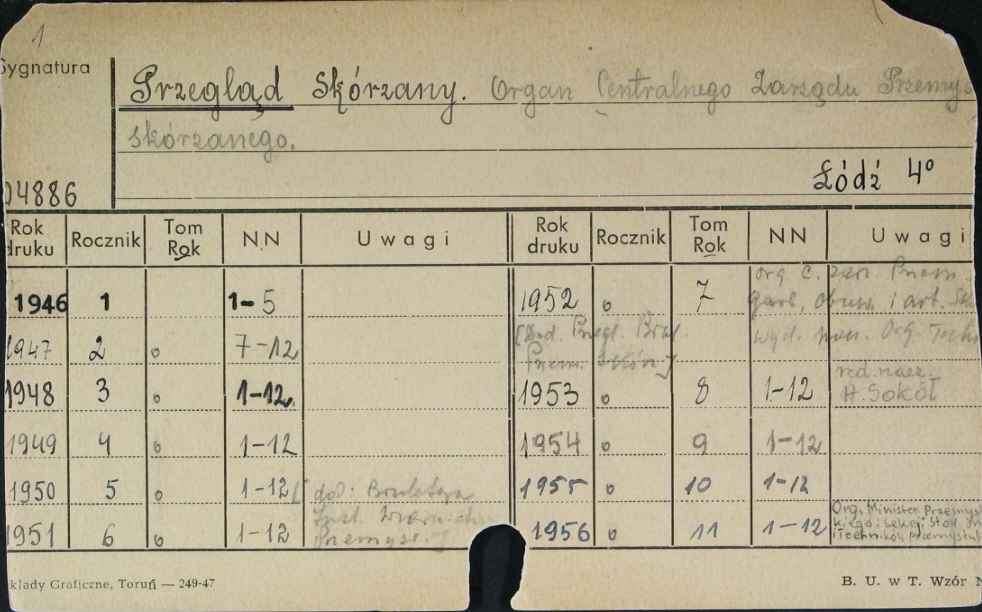 1
Sygnatura
Przegląd Skórzany. Organ Centralnego Zarządu Przemys
skórzanego.
04886
Łódź 4°
Rok druku Rocznik Tom Rok N.N Uwagi Rok druku Rocznik Tom Rok NN Uwagi
1946 1 1-5 1952 o 7 org. C. Przem.
garb, obuw. i art.
1947 2 o 7-12 wyd. Org. Techn
Przem.
1948 3 o 1-12 1953 o 8 1-12 red. nacz.
H. Sokół
1949 4 o 1-12 1954 o 9 1-12
1950 5 o 1-12 [dod: Biuletyn 1955 o 10 1-12
Inst.
1951 6 o 1-12 Przemysł.] 1956 o 11 1-12 Org. Minister. Przemysł
kiego i Sekcji Stow. In
i Techników Przemysłu
kłady Graficzne, Toruń — 249-47
B. U. w T. Wzór N